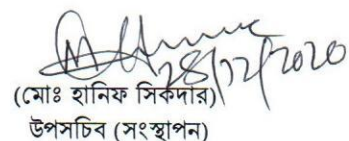 28/12/2020
(মোঃ হানিফ সিকদার)
উপসচিব (সংস্থাপন)